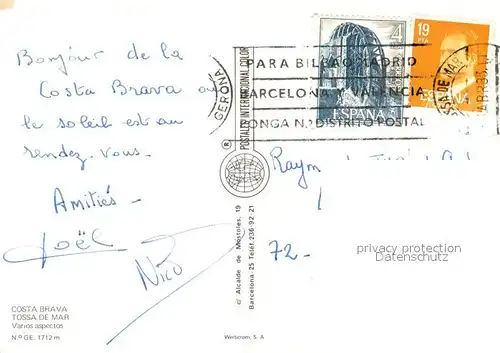 Bonjour de la
Costa Brava où
le soleil est au
rendez-vous.
Amitiés-
Joël
Nico
COSTA BRAVA
TOSSA DE MAR
Varios aspectos
N.º GE. 1712 m
POSTALES INTERNATIONAL COLOR
®
c/ Alcalde de Móstoles, 19
Barcelona-25 Teléf. 236-92-21
Werscrom, S. A
GERONA
PARA BILBAO MADRID
BARCELONA Y VALENCIA
PONGA N.º DISTRITO POSTAL
4
PTA
ESPAÑA
19
PTA
ESPAÑA
TOSSA DE MAR
Raym
72-
privacy protection
Datenschutz